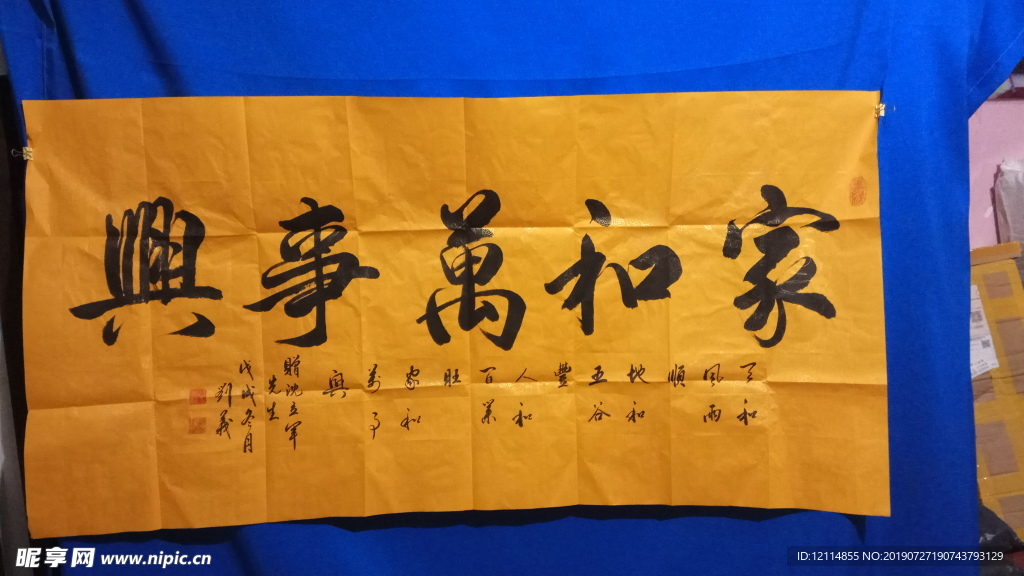 家和萬事興
天和
風雨
順
地和
五谷
豐
人和
百業
旺
家和
萬事
興
贈沈立軍
先生
戊戌冬月
劉義
昵享网 www.nipic.cn
ID:12114855 NO:20190727190743793129